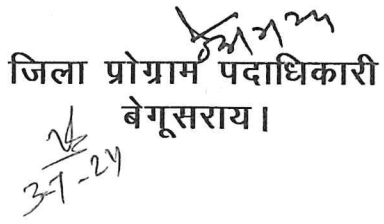 जिला प्रोग्राम पदाधिकारी
बेगूसराय।
3-7-24